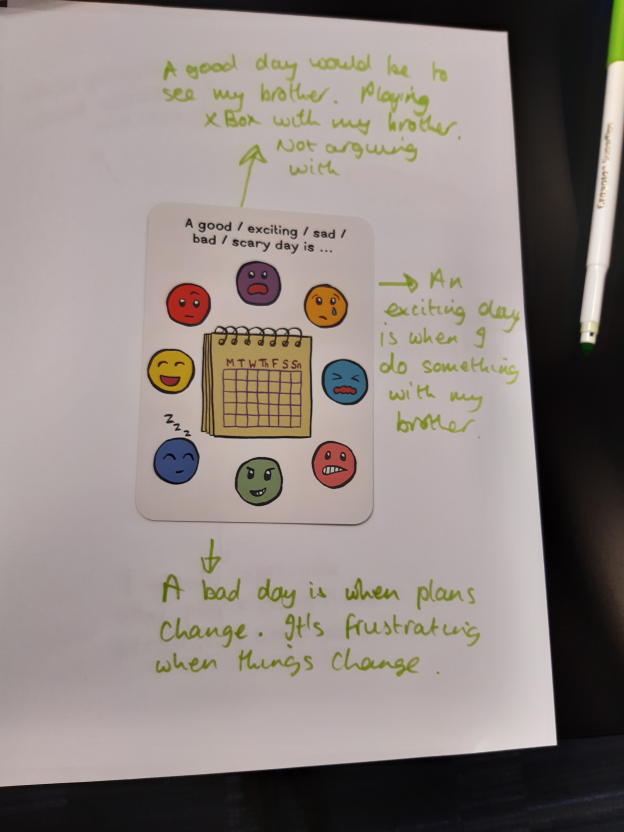 A good day would be to
see my brother. Playing
xBox with my brother.
Not arguing
with
A good / exciting / sad /
bad / scary day is ...
M T W Th F S Sn
z z z
An
exciting day
is when I
do something
with my
brother.
A bad day is when plans
change. It's frustrating
when things change.